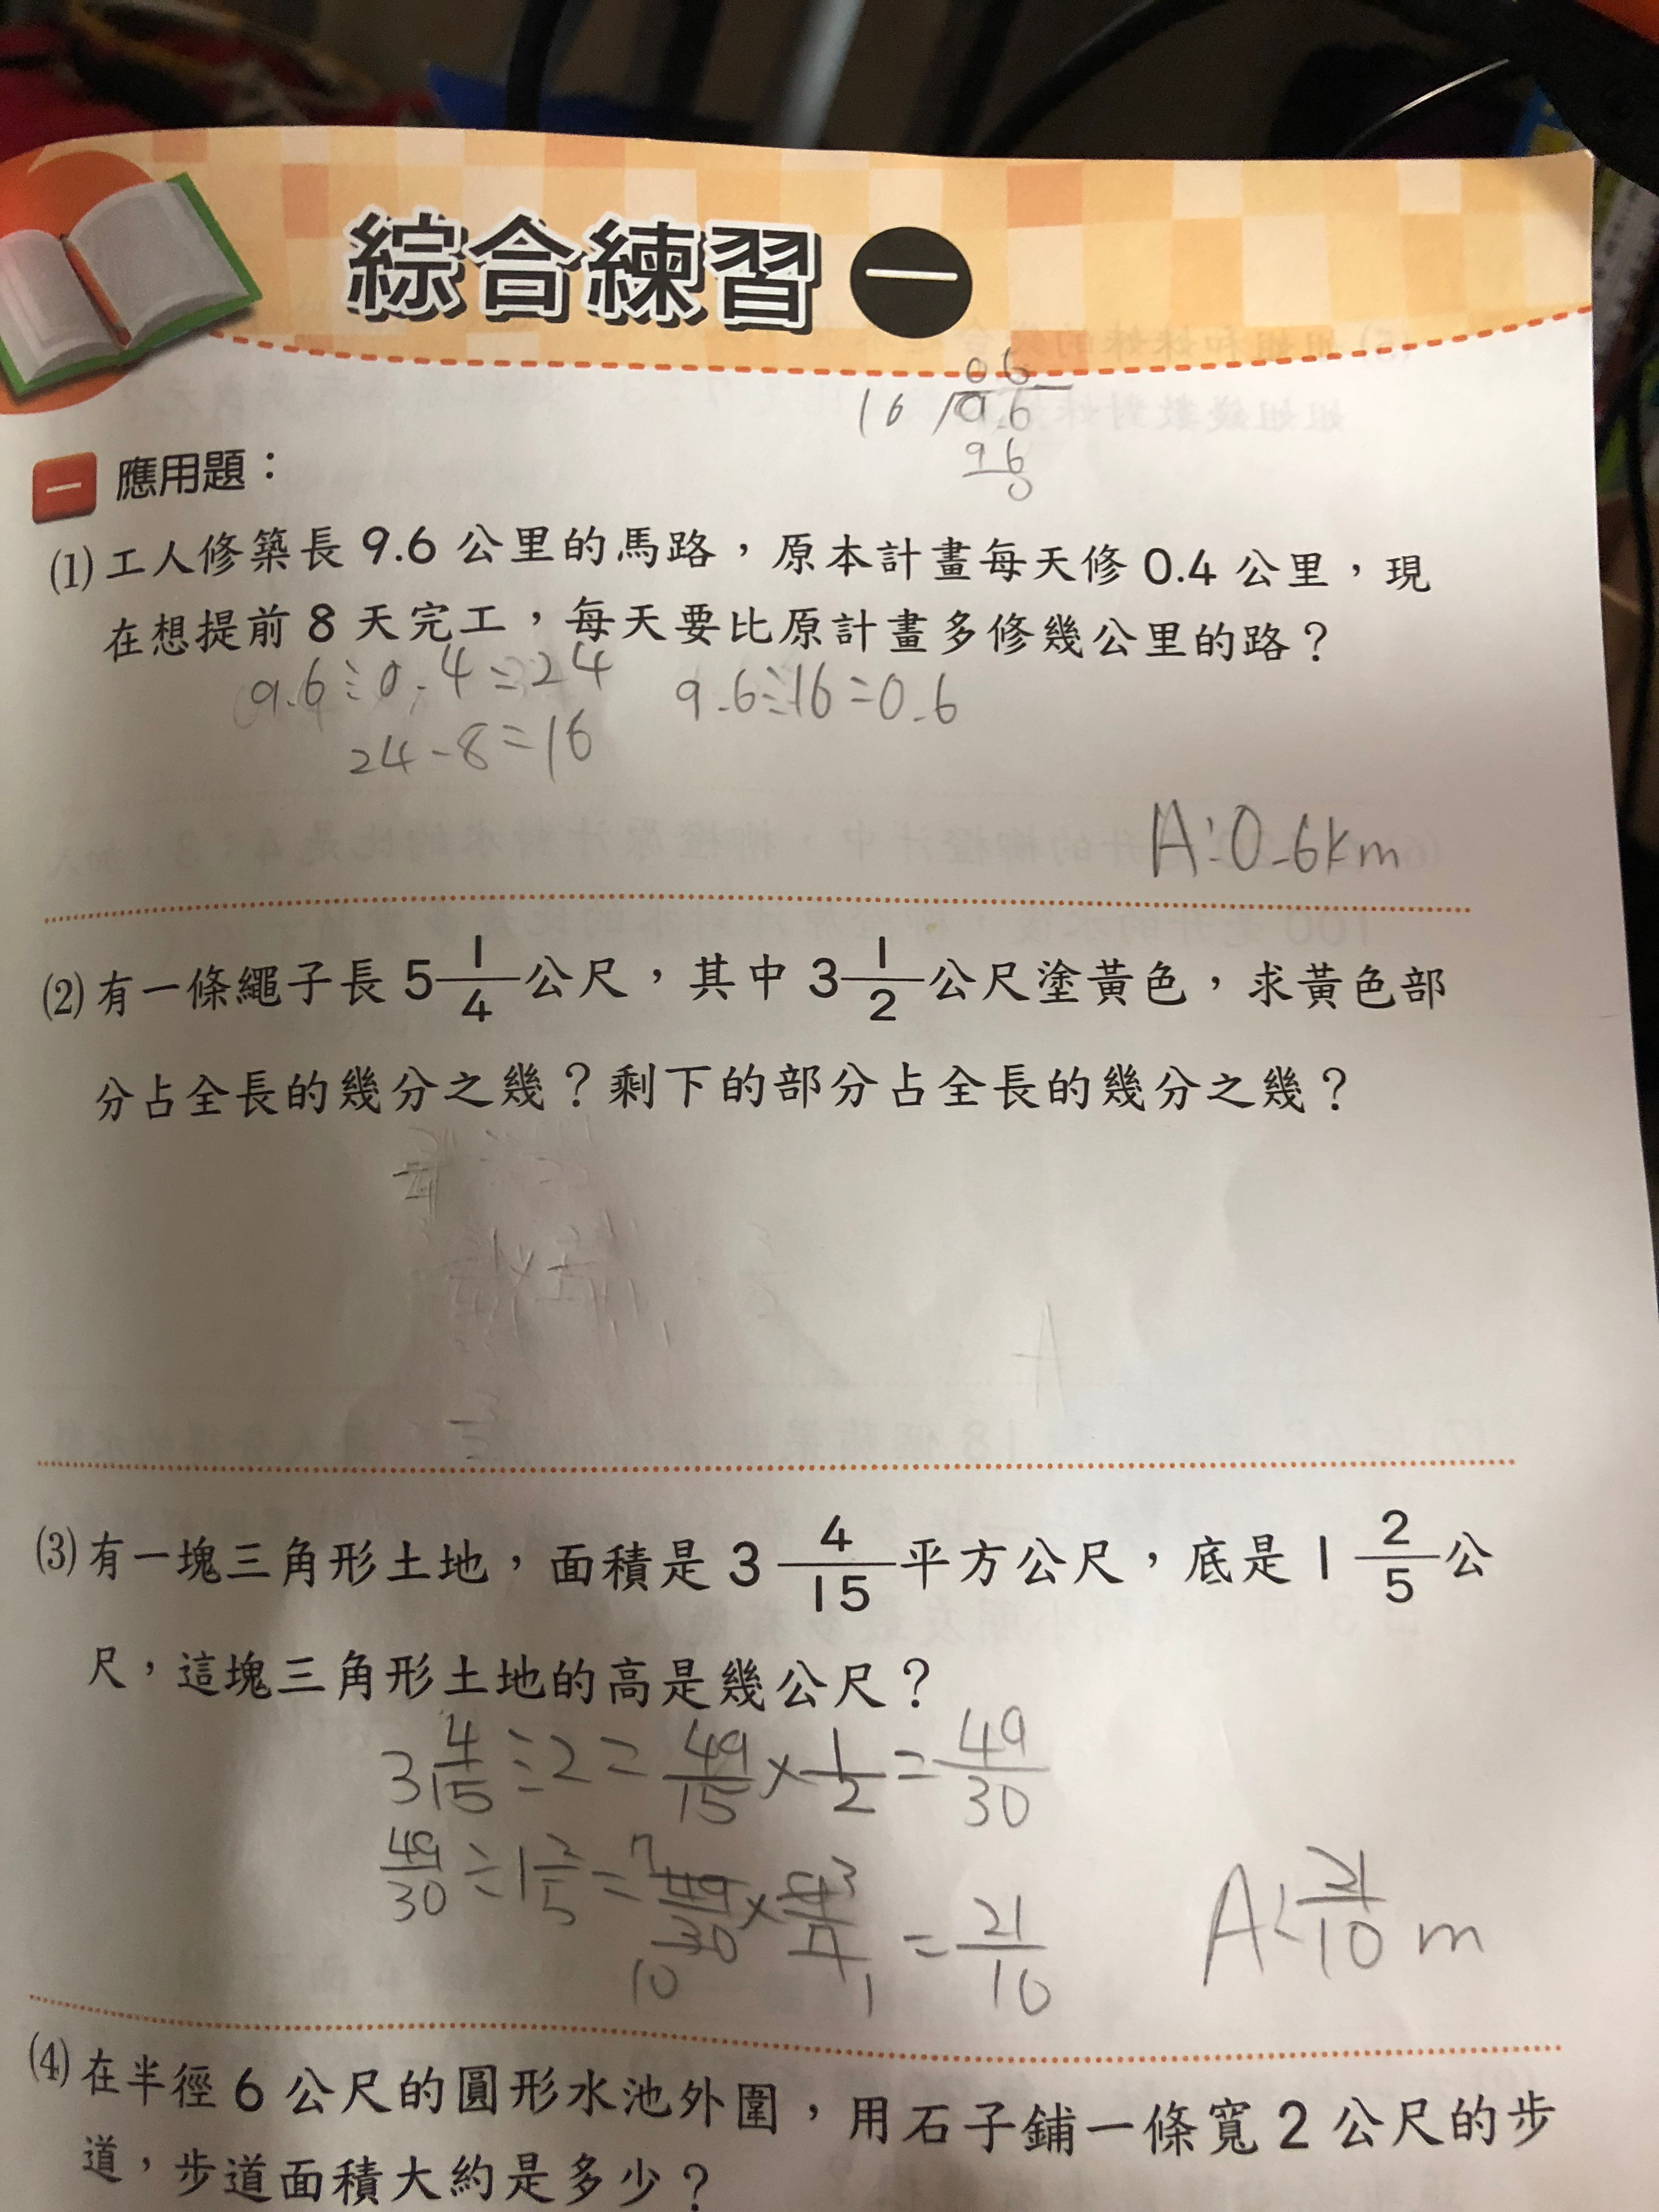 綜合練習 一
0 6
16 9.6
9 6
0
一 應用題：
(1) 工人修築長 9.6 公里的馬路，原本計畫每天修 0.4 公里，現
在想提前 8 天完工，每天要比原計畫多修幾公里的路？
9.6÷0.4=24 9.6÷16=0.6
24-8=16
A:0.6km
(2) 有一條繩子長 5 1/4 公尺，其中 3 1/2 公尺塗黃色，求黃色部
分占全長的幾分之幾？剩下的部分占全長的幾分之幾？
(3) 有一塊三角形土地，面積是 3 4/15 平方公尺，底是 1 2/5 公
尺，這塊三角形土地的高是幾公尺？
3 4/15 ÷ 2 = 49/15 × 1/2 = 49/30
49/30 ÷ 1 2/5 = 7 49/30 10 × 3 /7 1 = 21/10
A: 21/10 m
(4) 在半徑 6 公尺的圓形水池外圍，用石子鋪一條寬 2 公尺的步
道，步道面積大約是多少？